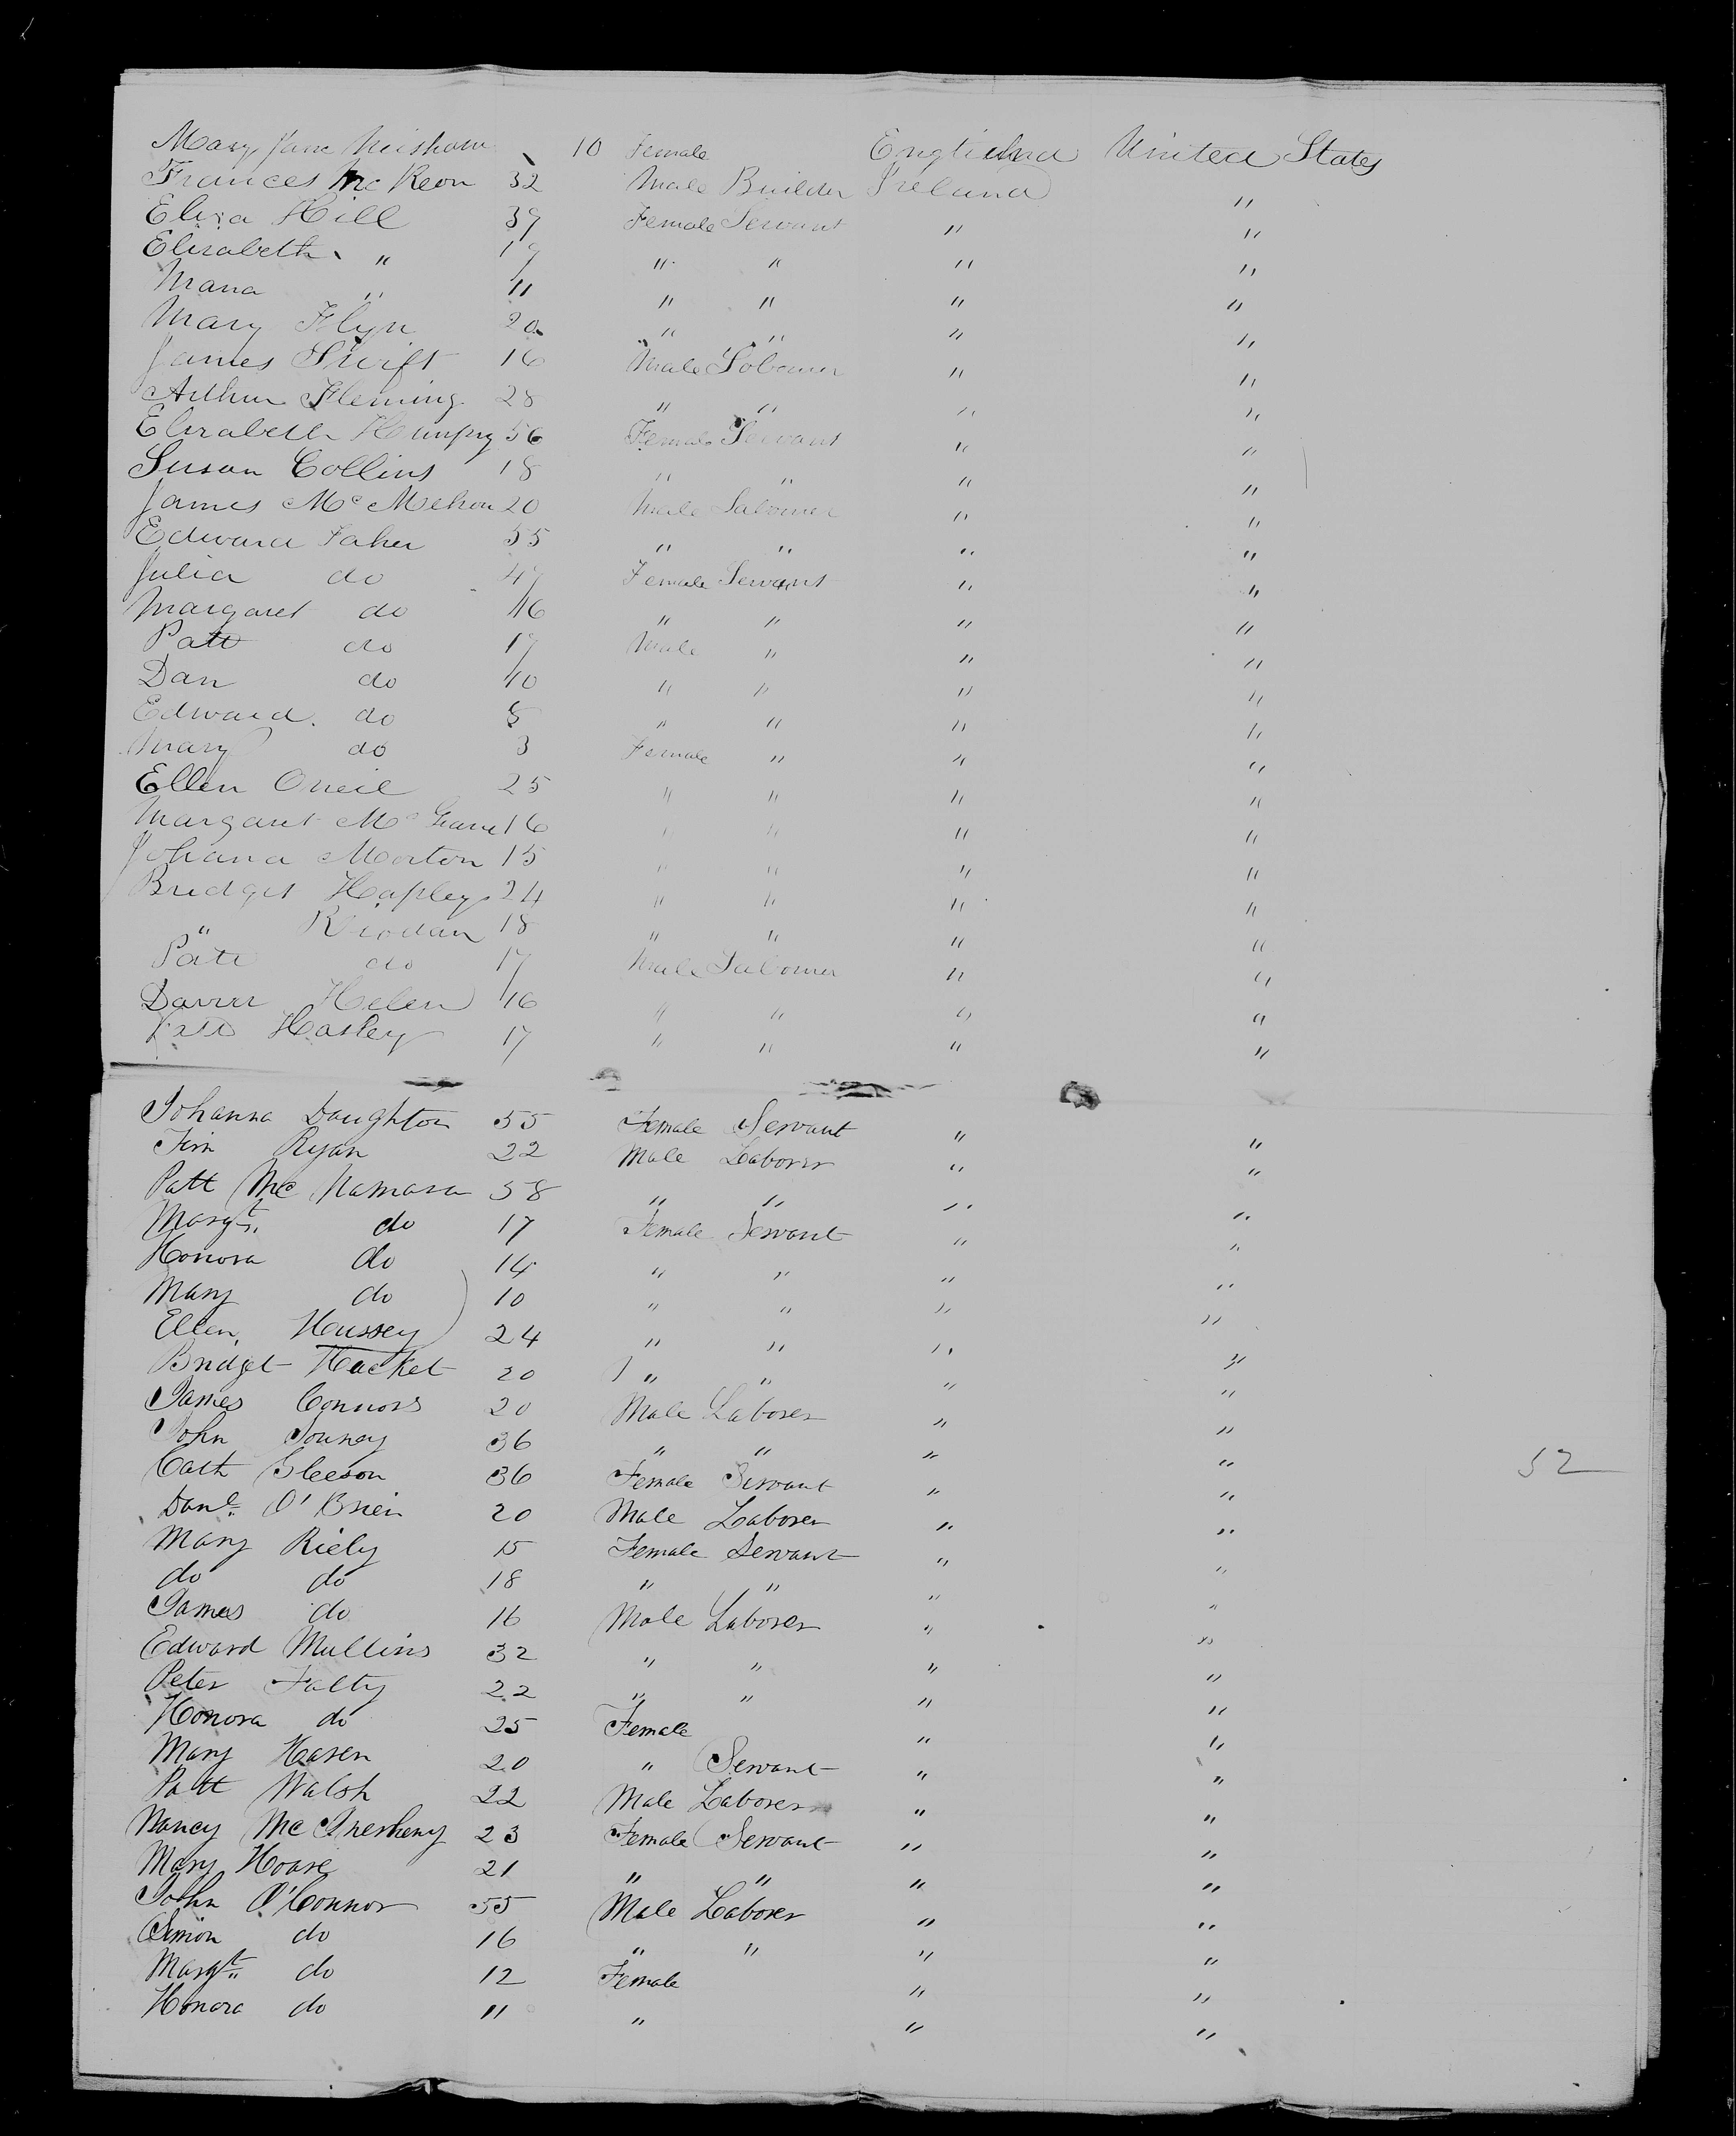 Mary Jane 10 Female England United States
Frances McKeon 32 Male Builder Ireland "
Eliza Hill 39 Female Servant " "
Elizabeth " 19 " " " "
Maria " 11 " " " "
Mary Flyn 20 " " " "
James Swift 16 Male Labourer " "
Arthur Fleming 28 " " " "
Elizabeth Humpry 56 Female Servant " "
Susan Collins 18 " " " "
James McMehon 20 Male Labourer " "
Edward Faher 55 " " " "
Julia do 47 Female Servant " "
Margaret do 16 " " " "
Patt do 17 Male " " "
Dan do 10 " " " "
Edward do 8 " " " "
Mary do 3 Female " " "
Ellen Oneil 25 " " " "
Margaret Mc 16 " " " "
Johana Morton 15 " " " "
Bridget Hapley 24 " " " "
" Riodan 18 " " " "
Patt do 17 Male Labourer " "
Helen 16 " " " "
Patt Hasley 17 " " " "
Johanna Daughton 55 Female Servant " "
Tim Ryan 22 Male Laborer " "
Patt McNamara 58 " " " "
Margt. do 17 Female Servant " "
Honora do 14 " " " "
Mary do 10 " " " "
Ellen Hussey 24 " " " "
Bridget Hacket 20 " " " "
James Connors 20 Male Laborer " "
John 36 " " " "
Cath Gleeson 36 Female Servant " " 52
Danl. O'Brien 20 Male Laborer " "
Mary Riely 15 Female Servant " "
do do 18 " " " "
James do 16 Male Laborer " "
Edward Mullins 32 " " " "
Peter Falty 22 " " " "
Honora do 25 Female " "
Mary Hasen 20 " Servant " "
Patt Walsh 22 Male Laborer " "
Nancy Mc 23 Female Servant " "
Mary Hoare 21 " " " "
John O'Connor 55 Male Laborer " "
Simon do 16 " " " "
Margt. do 12 Female " "
Honora do 11 " " "